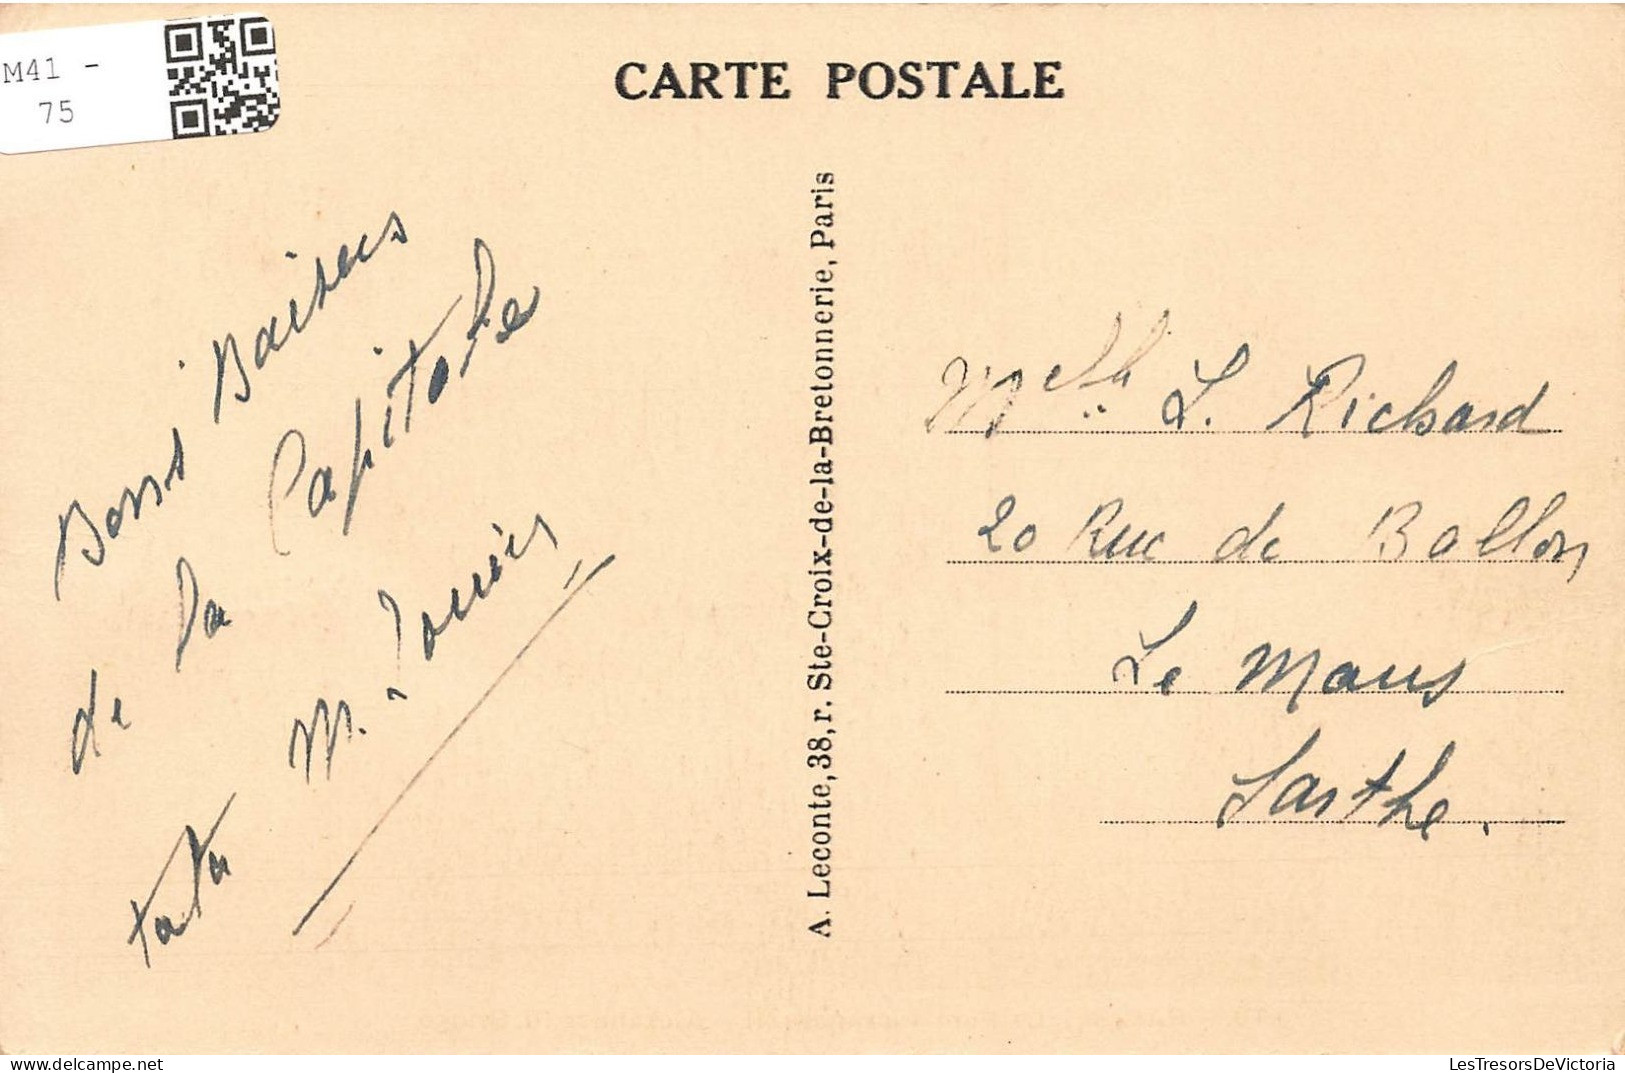 M41 -
75
CARTE POSTALE
Bons Baisers
de la Capitale
tata M.
A. Leconte, 38, r. Ste-Croix-de-la-Bretonnerie, Paris
Melle L. Richard
20 Rue de Ballon
Le Mans
Sarthe.
LesTresorsDeVictoria